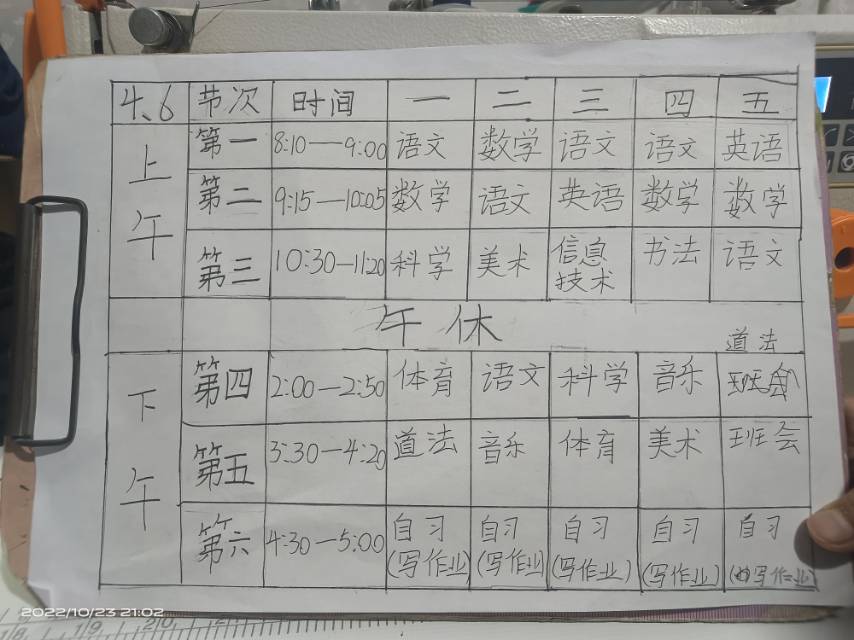 4.6 节次 时间 一 二 三 四 五
上午
第一 8:10—9:00 语文 数学 语文 语文 英语
第二 9:15—10:05 数学 语文 英语 数学 数学
第三 10:30—11:20 科学 美术 信息技术 书法 语文
午休
道法
下午
第四 2:00—2:50 体育 语文 科学 音乐 班会
第五 3:30—4:20 道法 音乐 体育 美术 班会
第六 4:30—5:00 自习 自习 自习 自习 自习
(写作业) (写作业) (写作业) (写作业) (写作业)
2022/10/23 21:02
18 19 20